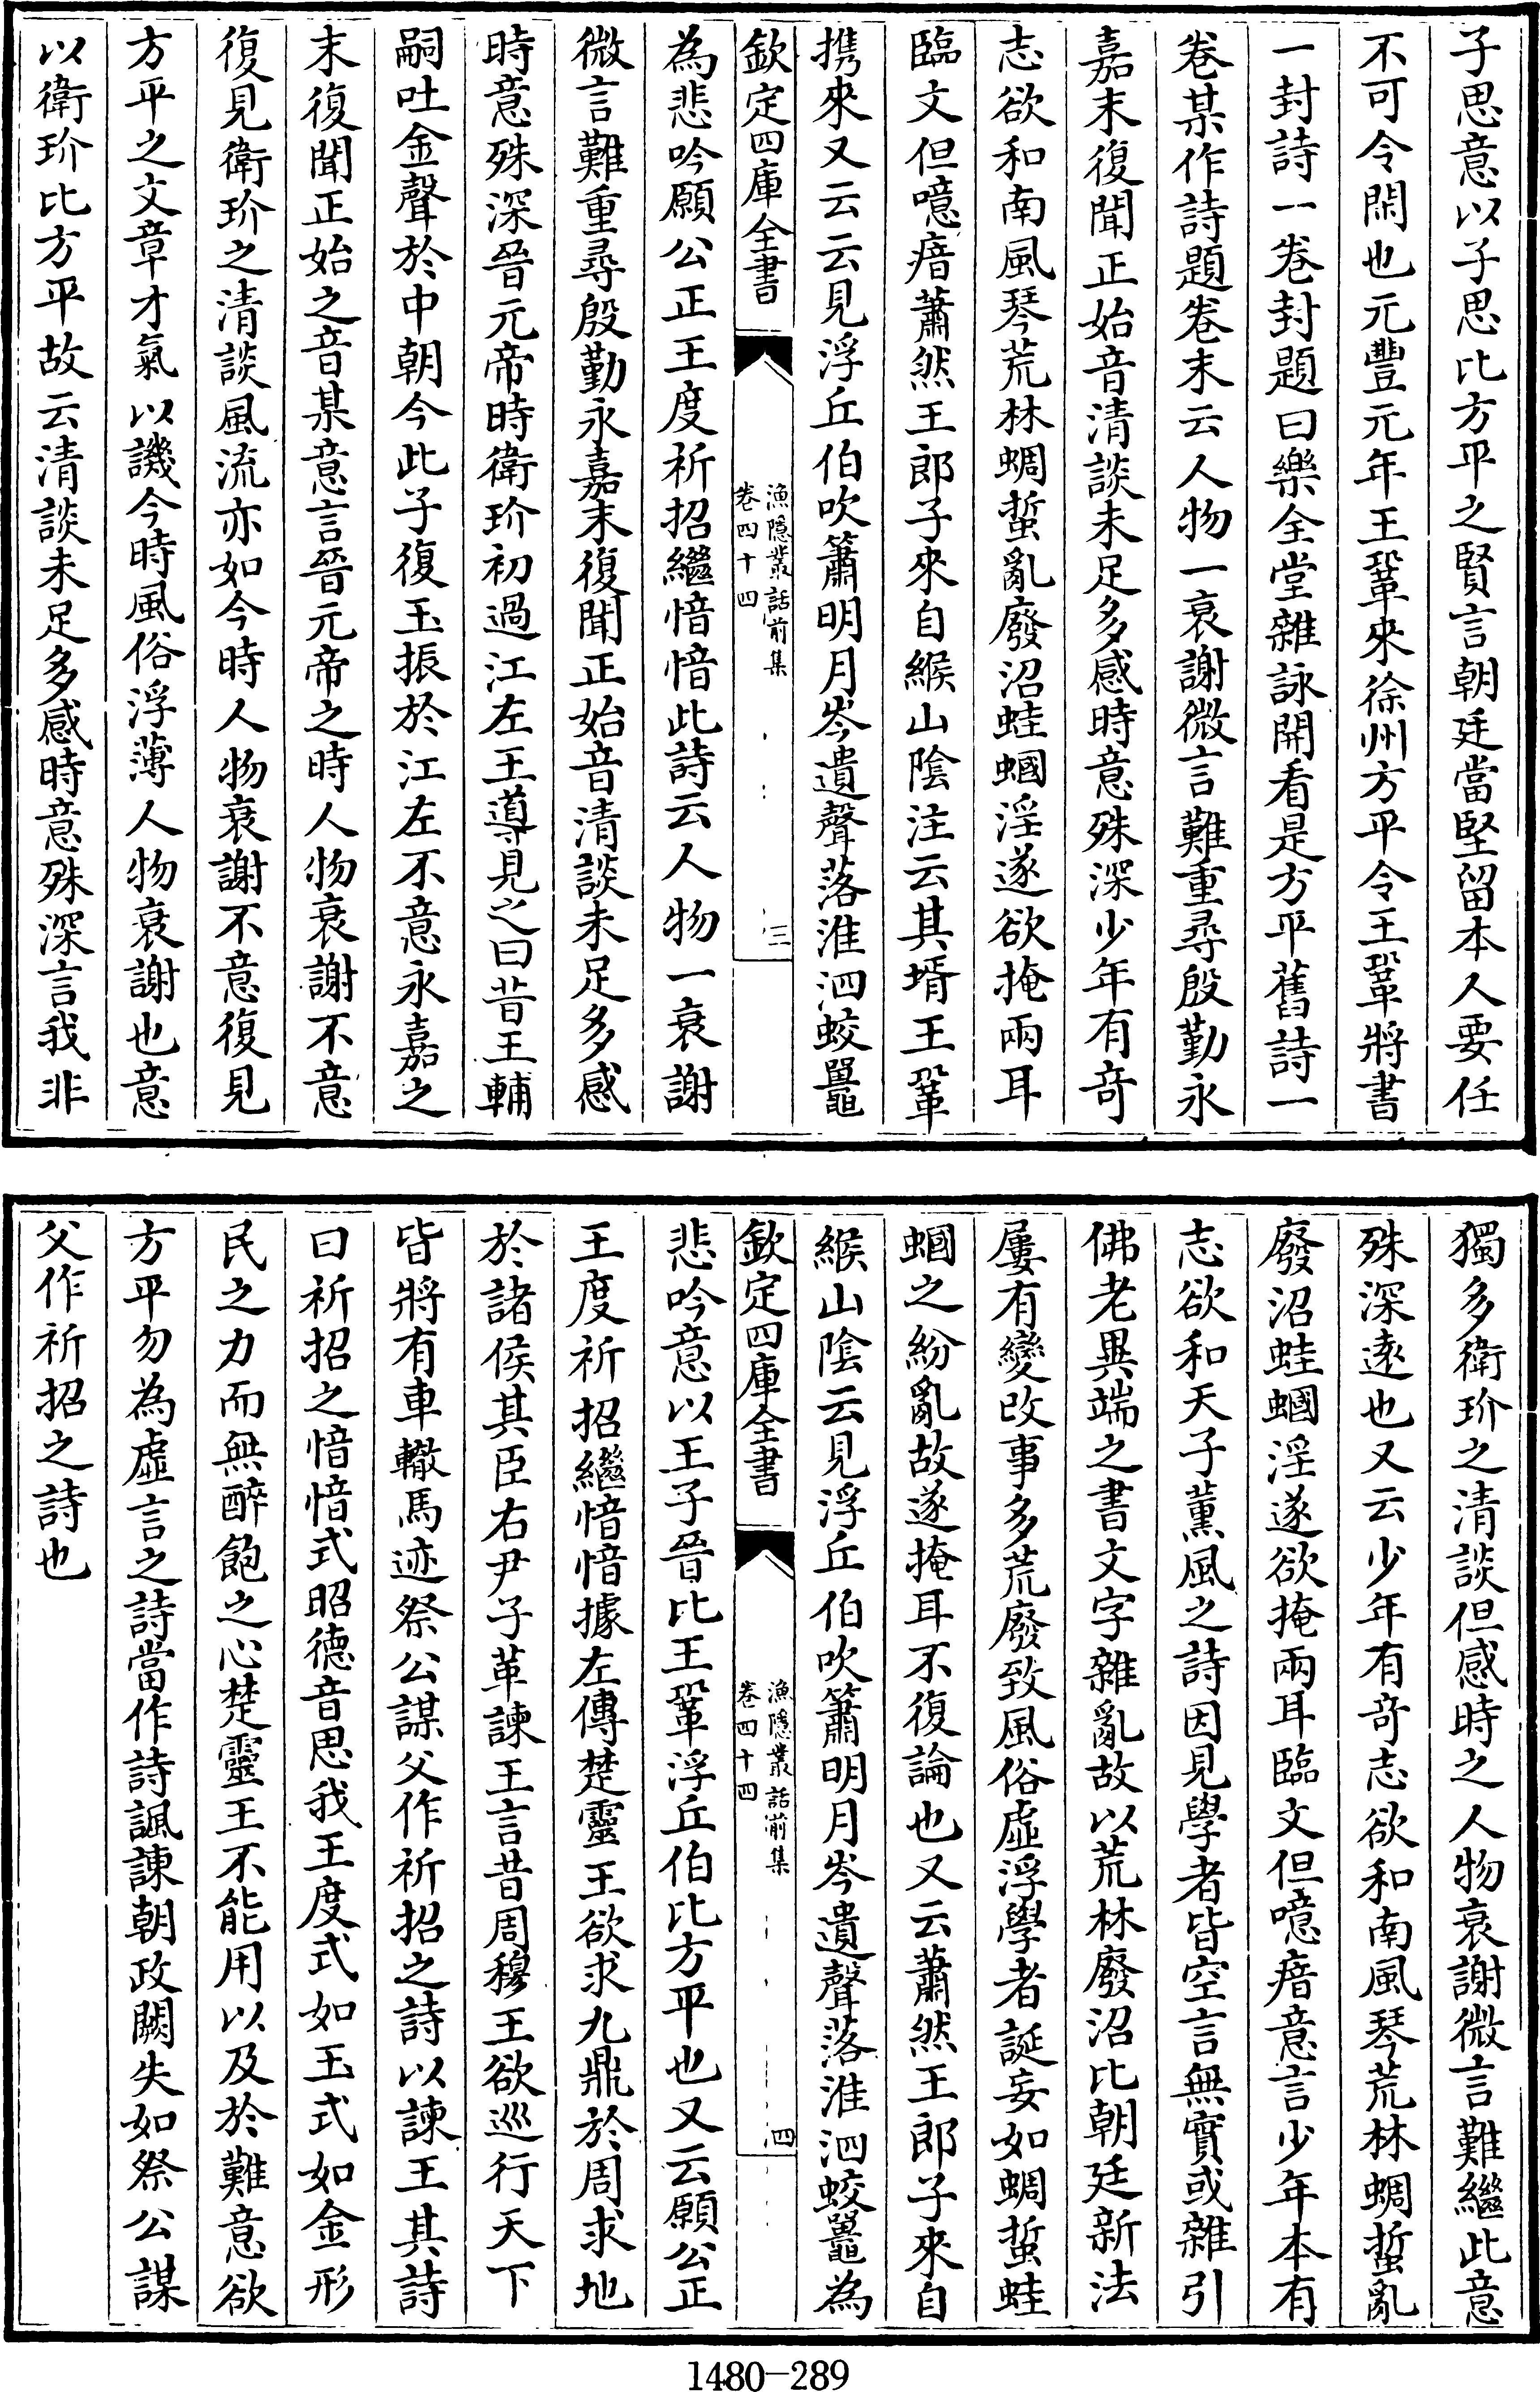 子思意以子思比方平之賢言朝廷當堅留本人要任
不可令閑也元豐元年王鞏來徐州方平令王鞏將書
一封詩一卷封題曰樂全堂雜詠開看是方平舊詩一
卷某作詩題卷末云人物一衰謝微言難重尋殷勤永
嘉末復聞正始音清談未足多感時意殊深少年有奇
志欲和南風琴荒林蜩蜇亂廢沼蛙蟈淫遂欲掩兩耳
臨文但噫瘖蕭然王郎子來自緱山陰注云其壻王鞏
携來又云云見浮丘伯吹簫明月岑遺聲落淮泗蛟鼉
欽定四庫全書
漁隱叢話前集
卷四十四
三
為悲吟願公正王度祈招繼愔愔此詩云人物一衰謝
微言難重尋殷勤永嘉末復聞正始音清談未足多感
時意殊深晉元帝時衛玠初過江左王導見之曰昔王輔
嗣吐金聲於中朝今此子復玉振於江左不意永嘉之
末復聞正始之音某意言晉元帝之時人物衰謝不意
復見衛玠之清談風流亦如今時人物衰謝不意復見
方平之文章才氣以譏今時風俗浮薄人物衰謝也意
以衛玠比方平故云清談未足多感時意殊深言我非
獨多衛玠之清談但感時之人物衰謝微言難繼此意
殊深遠也又云少年有奇志欲和南風琴荒林蜩蜇亂
廢沼蛙蟈淫遂欲掩兩耳臨文但噫瘖意言少年本有
志欲和天子薰風之詩因見學者皆空言無實或雜引
佛老異端之書文字雜亂故以荒林廢沼比朝廷新法
屢有變改事多荒廢致風俗虛浮學者誕妄如蜩蜇蛙
蟈之紛亂故遂掩耳不復論也又云蕭然王郎子來自
緱山陰云見浮丘伯吹簫明月岑遺聲落淮泗蛟鼉為
欽定四庫全書
漁隱叢話前集
卷四十四
四
悲吟意以王子晉比王鞏浮丘伯比方平也又云願公正
王度祈招繼愔愔據左傳楚靈王欲求九鼎於周求地
於諸侯其臣右尹子革諫王言昔周穆王欲巡行天下
皆將有車轍馬迹祭公謀父作祈招之詩以諫王其詩
曰祈招之愔愔式昭德音思我王度式如玉式如金形
民之力而無醉飽之心楚靈王不能用以及於難意欲
方平勿為虛言之詩當作詩諷諫朝政闕失如祭公謀
父作祈招之詩也
1480-289